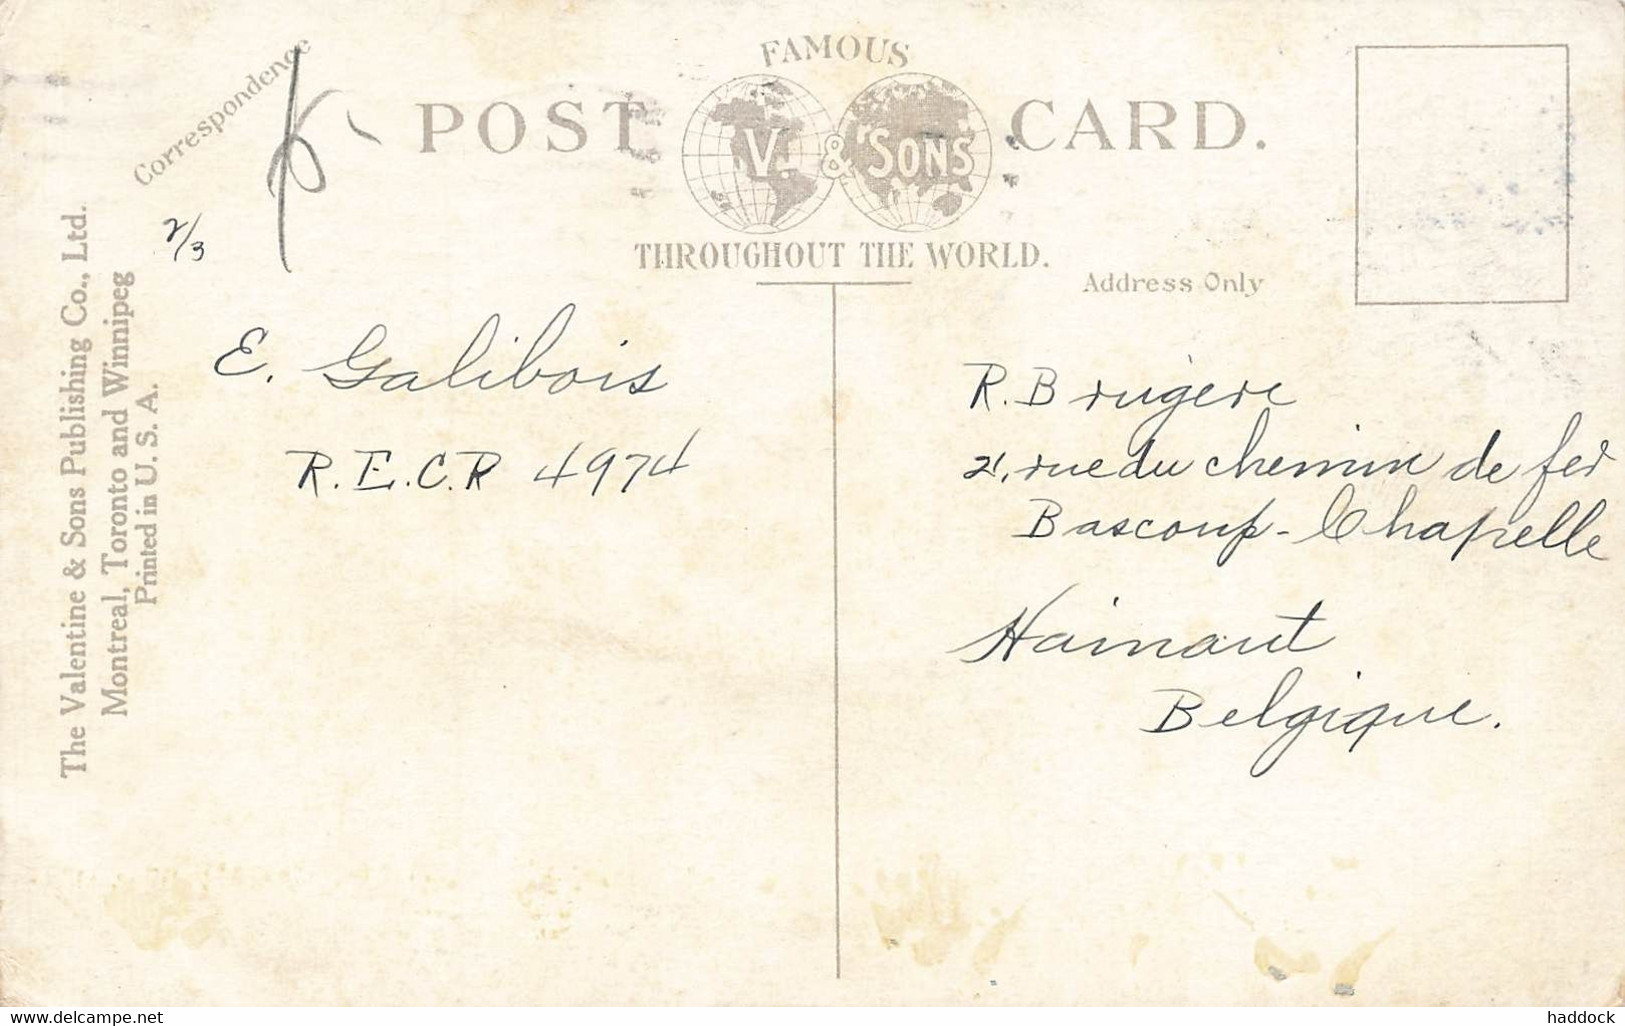 Correspondence
FAMOUS
POST CARD.
V. & SONS
THROUGHOUT THE WORLD.
Address Only
The Valentine & Sons Publishing Co., Ltd.
Montreal, Toronto and Winnipeg
Printed in U. S. A.
2/3
E. Galibois
R.E.C.R 4974
R. Brugère
2, rue du chemin de fer
Bascoup-Chapelle
Hainaut
Belgique.
www.delcampe.net
haddock